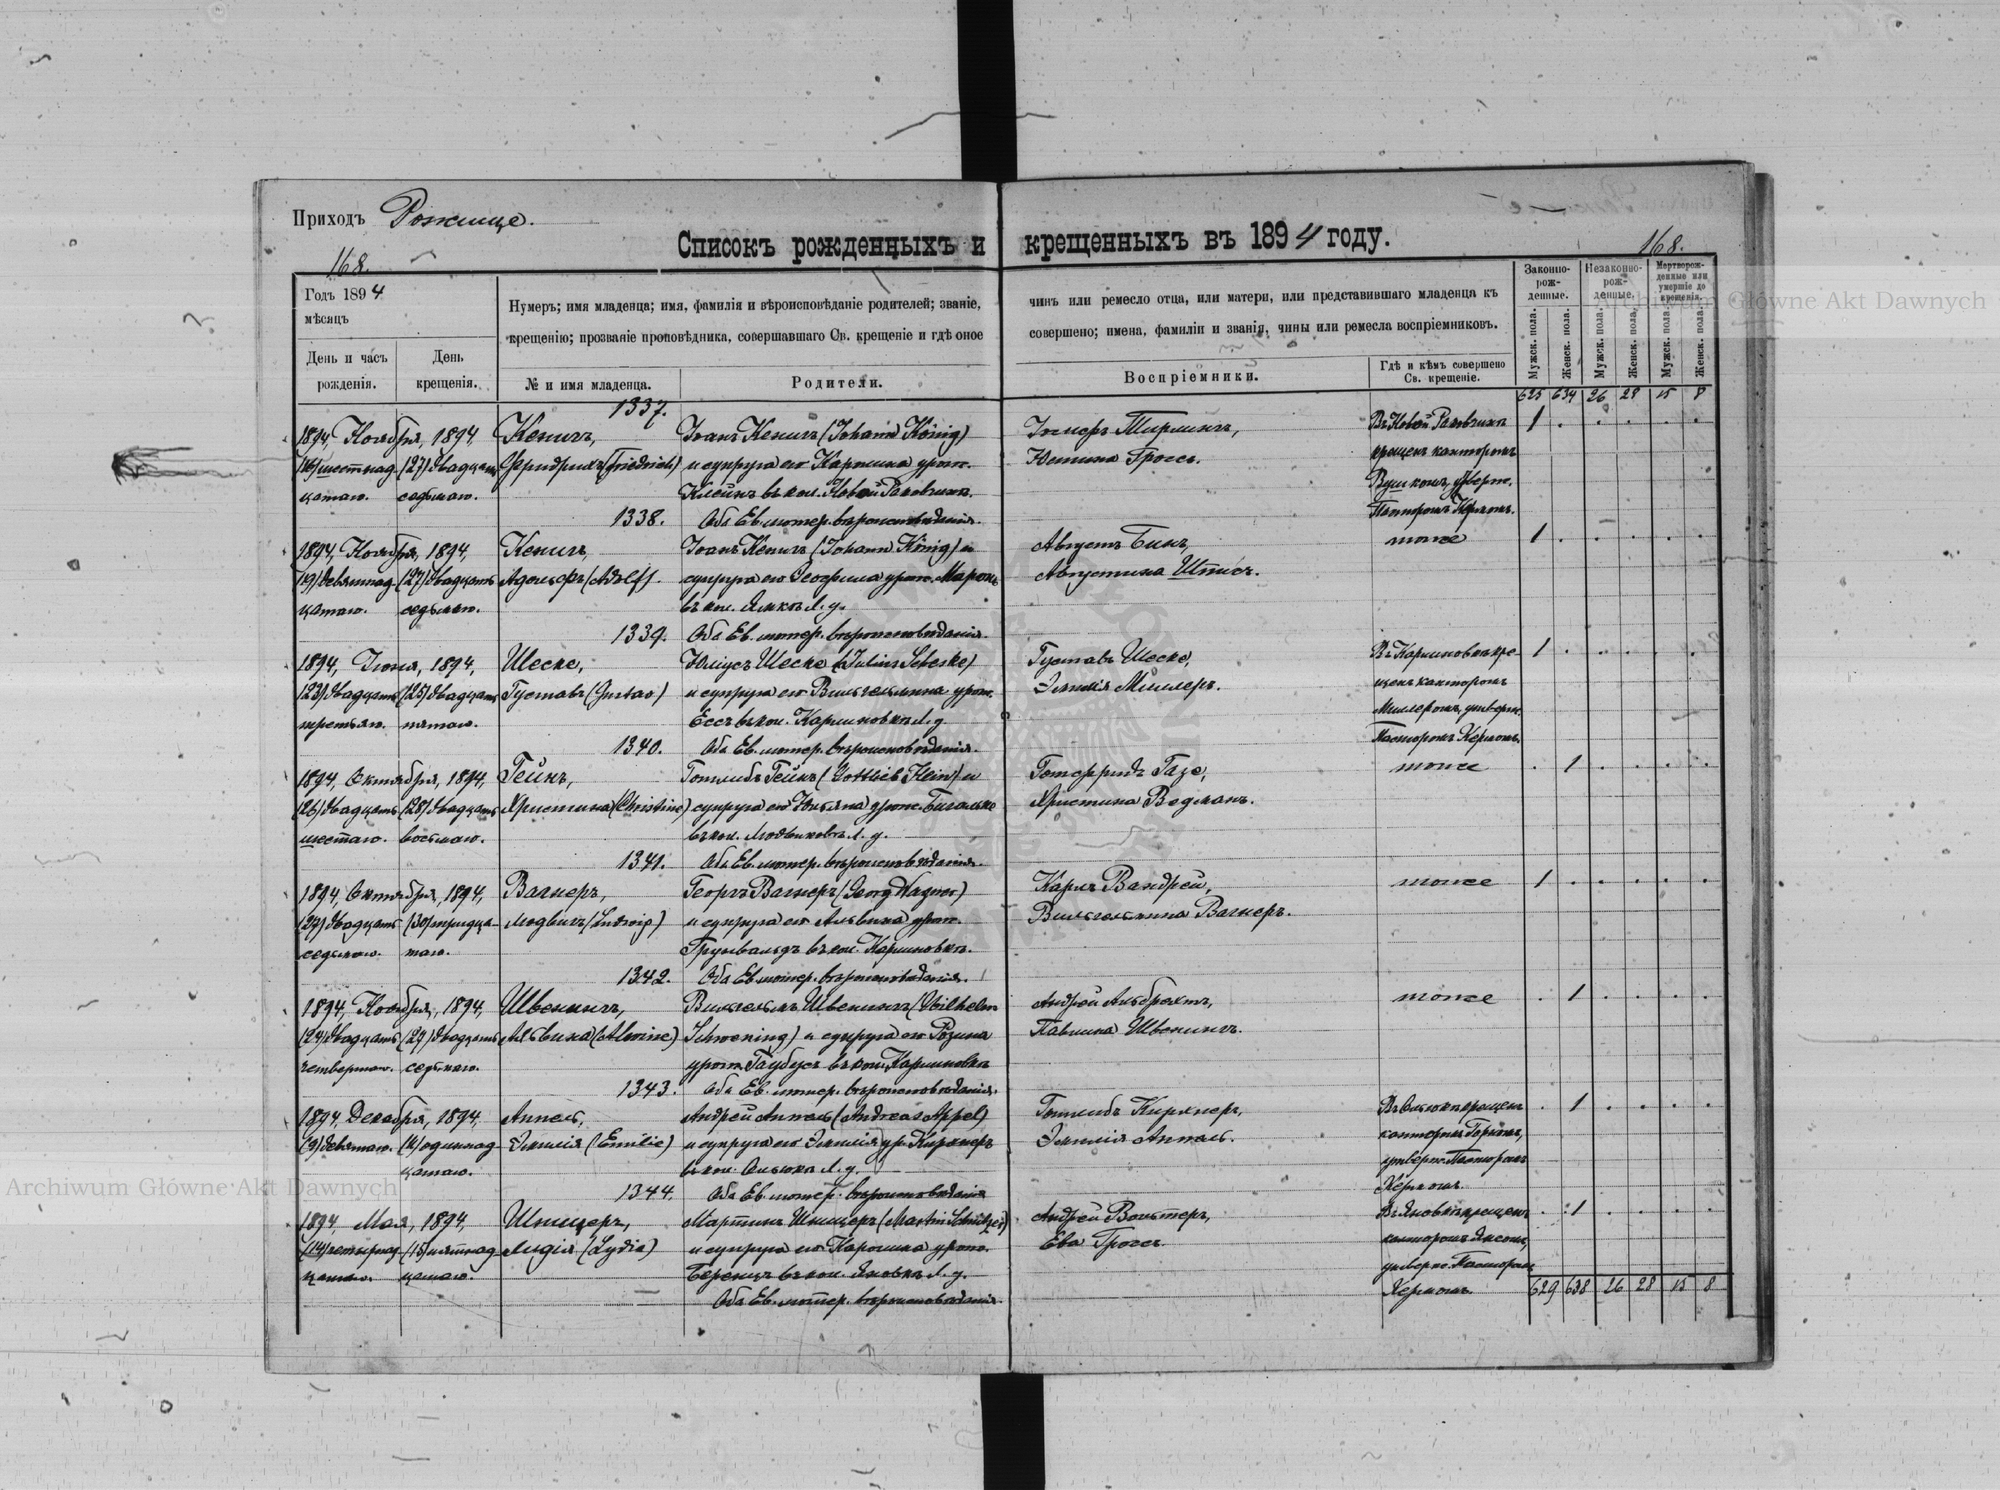 Приходъ Рожище.
168.
168.
Списокъ рожденныхъ и крещенныхъ въ 1894 году.
Годъ 1894
мѣсяцъ
День и часъ рожденія.
День крещенія.
Нумеръ; имя младенца; имя, фамилія и вѣроисповѣданіе родителей; званіе, чинъ или ремесло отца, или матери, или представившаго младенца къ
крещенію; прозваніе проповѣдника, совершавшаго Св. крещеніе и гдѣ оное совершено; имена, фамиліи и званія, чины или ремесла воспріемниковъ.
№ и имя младенца.
Родители.
Воспріемники.
Гдѣ и кѣмъ совершено Св. крещеніе.
Законно-рож-денные.
Незаконно-рож-денные.
Мертворож-денные или умершіе до крещенія.
Мужск. пола. Женск. пола. Мужск. пола. Женск. пола. Мужск. пола. Женск. пола.
625 634 26 28 15 8
1337.
1894, Ноября, 1894,
(16) шестнад (27) двадцать
цатаго. седьмаго.
Кенигъ,
Фридрихъ (Friedrich)
Іоанъ Кенигъ (Johann König)
и супруга его Каролина урож.
Клейнъ въ кол. Новой
Оба Ев. лютер. вѣроисповѣданія.
Юстина Гроссъ.
Въ Новой
крещенъ канторомъ
утверж.
Пасторомъ Кермомъ.
1
1338.
1894, Ноября, 1894,
(19) девятнад (27) двадцать
цатаго. седьмаго.
Кенигъ,
Адольфъ (Adolf).
Іоанъ Кенигъ (Johann König) и
супруга его Теофила урож.
въ кол. л. у.
Оба Ев. лютер. вѣроисповѣданія.
Августъ Бинъ,
Августина
тоже
1
1339.
1894, Іюня, 1894,
(23) двадцать (25) двадцать
третьяго. пятаго.
Шеске,
Густавъ (Gustav)
Юліусъ Шеске (Julius Scheske)
и супруга его Вильгельмина урож.
Ессъ въ кол. Каролиновкѣ л. у.
Оба Ев. лютер. вѣроисповѣданія.
Густавъ Шеске,
Эмилія Миллеръ.
Въ Каролиновкѣ кре-
щенъ канторомъ
Миллеромъ, утверж.
Пасторомъ Кермомъ.
1
1340.
1894, Октября, 1894,
(26) двадцать (28) двадцать
шестаго. восьмаго.
Гейнъ,
Христина (Christine)
Готлибъ Гейнъ (Gottlieb Hein) и
супруга его Юльяна урож.
въ кол. Людвиковкѣ л. у.
Оба Ев. лютер. вѣроисповѣданія.
Готфридъ Газе,
Христина Ведманъ.
тоже
1
1341.
1894, Октября, 1894,
(27) двадцать (30) тридца-
седьмаго. таго.
Вагнеръ,
Людвигъ (Ludwig)
Георгъ Вагнеръ (Georg Wagner)
и супруга его Альвина урож.
Грунвальдъ въ кол. Каролиновкѣ.
Оба Ев. лютер. вѣроисповѣданія.
Карлъ Вандрей,
Вильгельмина Вагнеръ.
тоже
1
1342.
1894, Ноября, 1894,
(24) двадцать (27) двадцать
четвертаго. седьмаго.
Швенингъ,
Альвина (Alwine)
Вильгельмъ Швенингъ (Wilhelm
Schwening) и супруга его Розина
урож. Таубусъ въ кол. Каролиновкѣ
Оба Ев. лютер. вѣроисповѣданія.
Андрей Альбрехтъ,
Павлина Швенингъ.
тоже
1
1343.
1894, Декабря, 1894,
(9) девятаго. (11) одиннад
цатаго.
Аппель,
Эмилія (Emilie)
Андрей Аппель (Andreas Appel)
и супруга его Эмилія ур. Кирхнеръ
въ кол. л. у.
Оба Ев. лютер. вѣроисповѣданія
Готлибъ Кирхнеръ,
Эмилія Аппель.
крещенъ
канторомъ
утверж. Пасторомъ
Кермомъ.
1
1344.
1894, Мая, 1894,
(14) четырнад (15) пятнад
цатаго. цатаго.
Шницеръ,
Лидія (Lydia)
Мартинъ Шницеръ (Martin Schnitzer)
и супруга его Каролина урож.
Беренцъ въ кол. Яновкѣ л. у.
Оба Ев. лютер. вѣроисповѣданія.
Андрей Вольтеръ,
Ева Гроссъ.
Въ Яновкѣ крещенъ
канторомъ
утверж. Пасторомъ
Кермомъ.
1
629 638 26 28 15 8
Archiwum Główne Akt Dawnych
Archiwum Główne Akt Dawnych